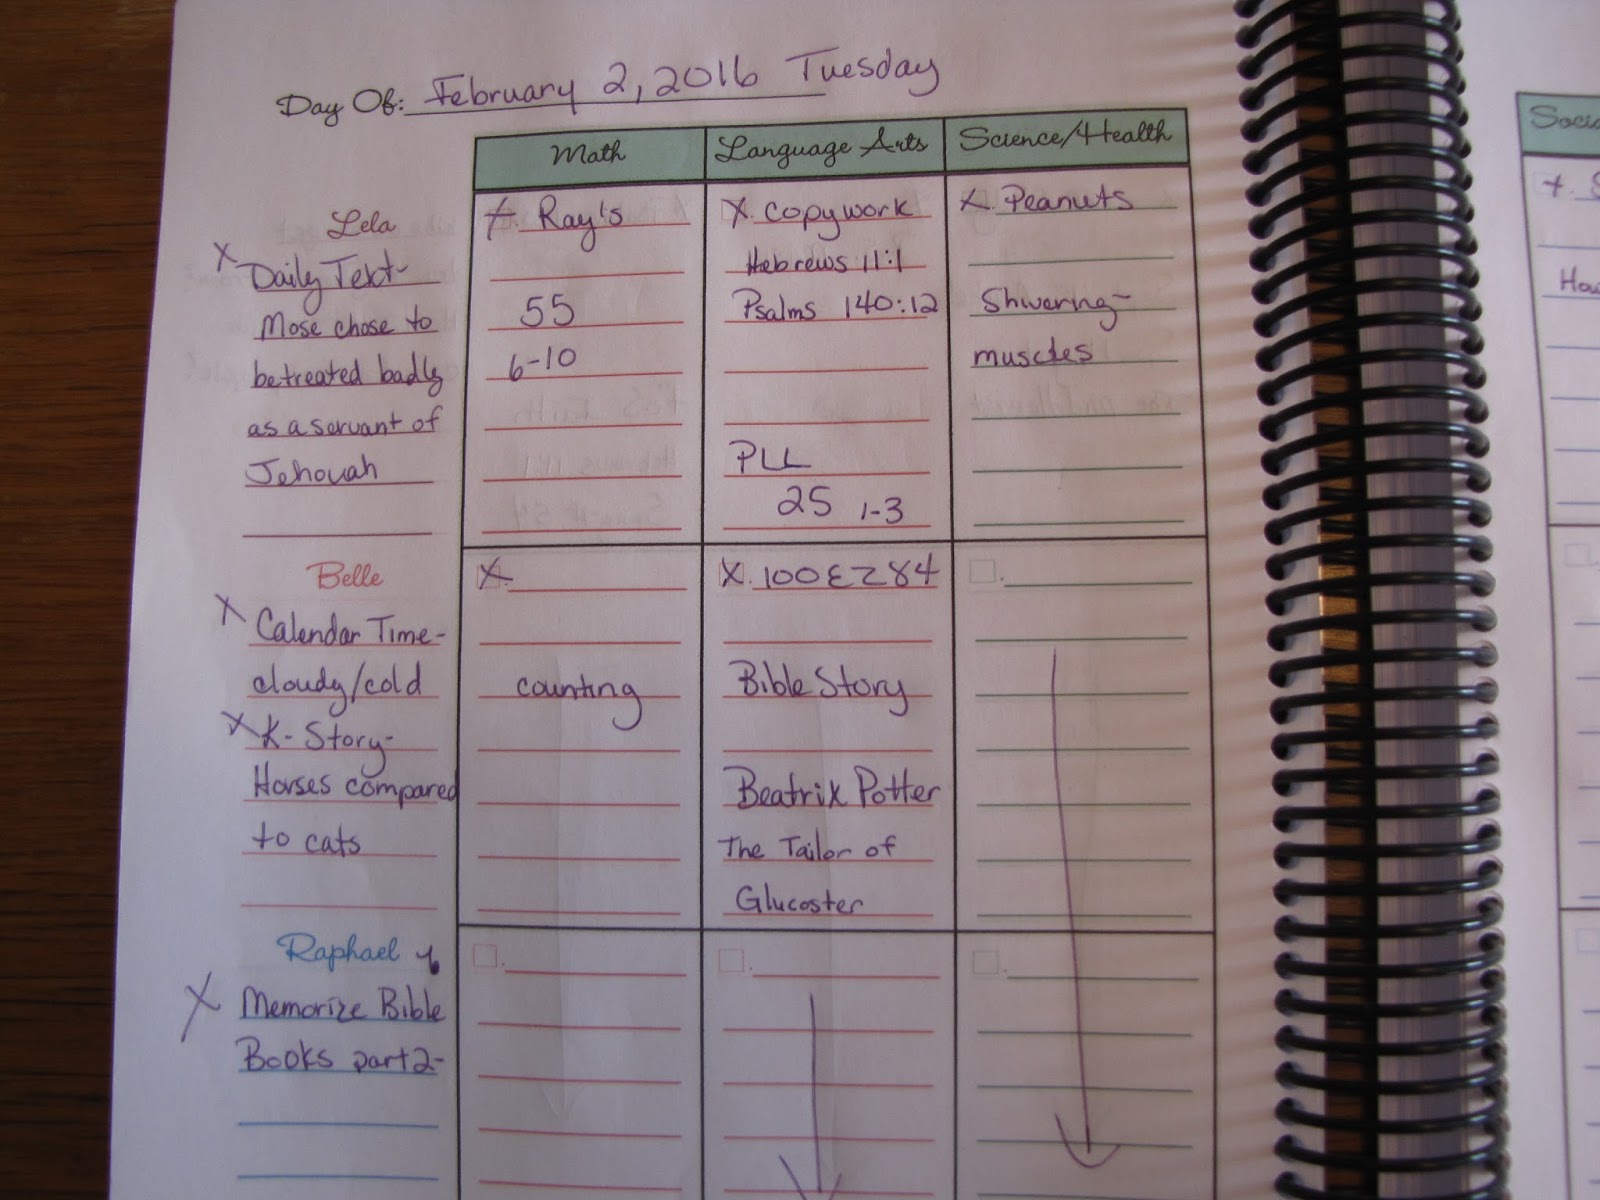 Day Of: February 2, 2016 Tuesday
Math
Language Arts
Science/Health
Lela
X
Daily Text-
Mose chose to
be treated badly
as a servant of
Jehovah
X. Ray's
55
6-10
X. copywork
Hebrews 11:1
Psalms 140:12
PLL
25 1-3
X. Peanuts
Shivering-
muscles
Belle
X Calendar Time-
cloudy/cold
X K- Story-
Horses compared
to cats
X.
counting
X. 100EZ84
Bible Story
Beatrix Potter
The Tailor of
Glucoster
Raphael
X Memorize Bible
Books part 2-